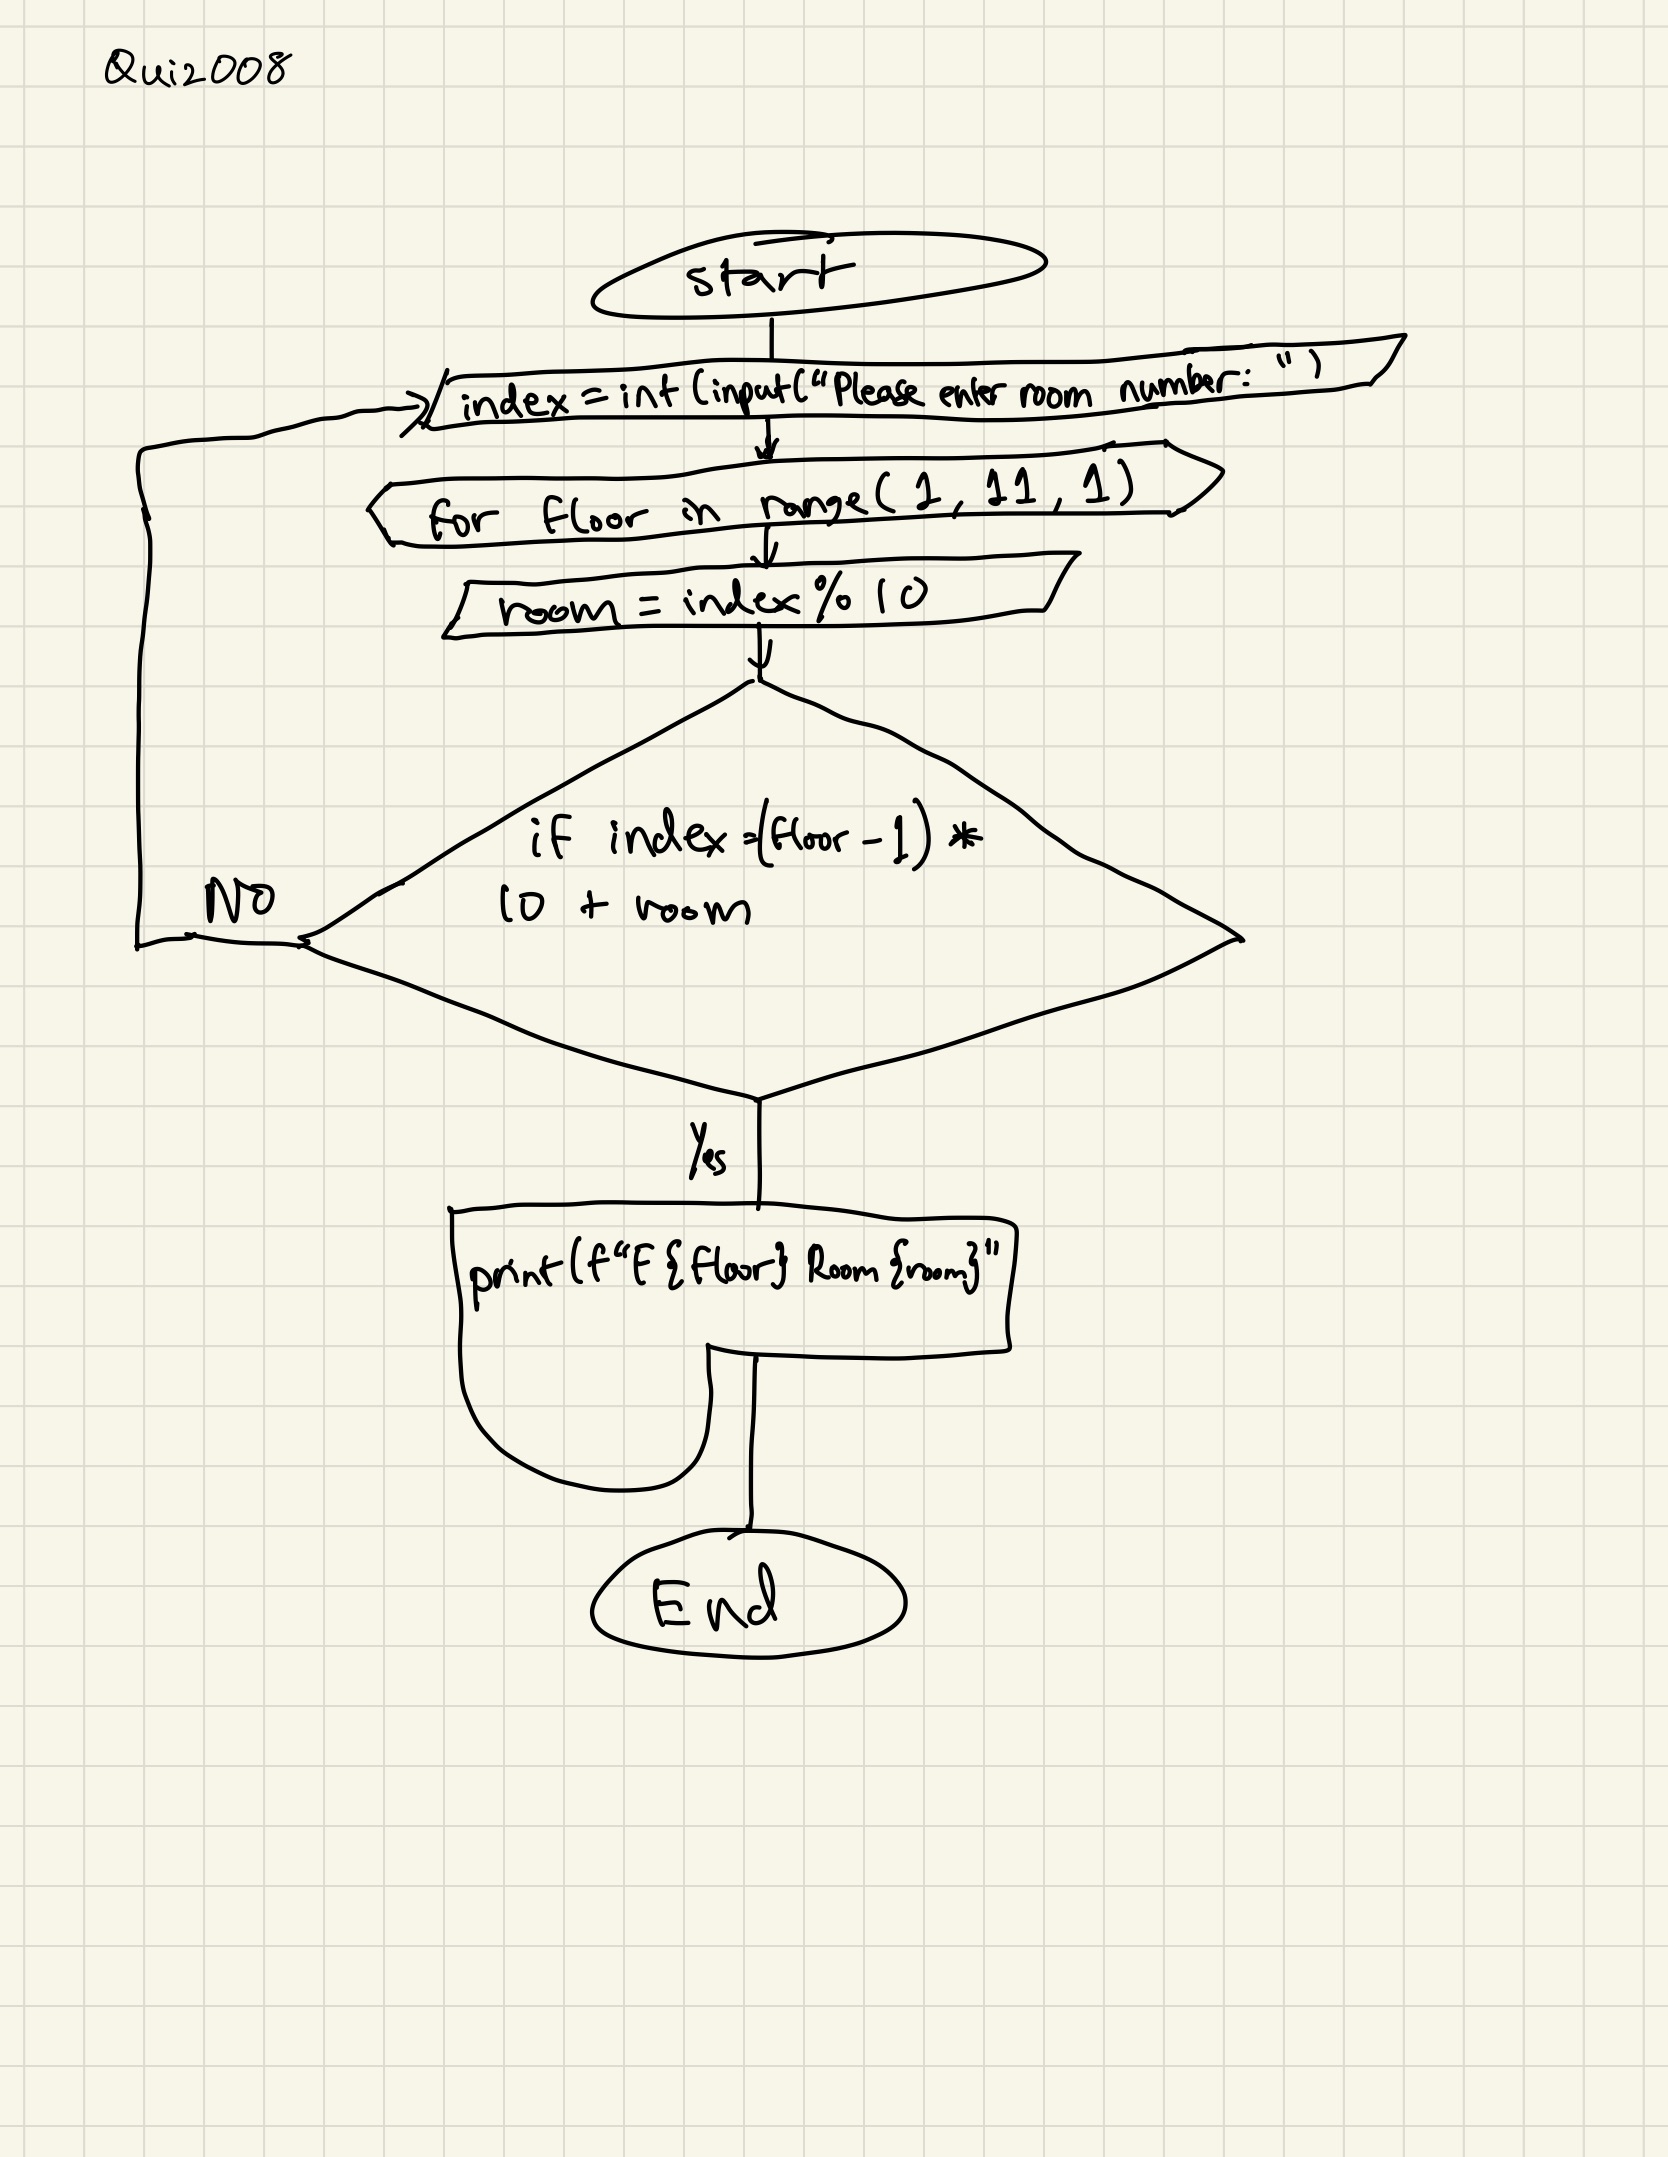 Quiz008
start
index = int (input("Please enter room number: ")
for floor in range(1, 11, 1)
room = index % 10
if index =(floor-1) *
10 + room
NO
Yes
print(f"F{floor} Room{room}"
End